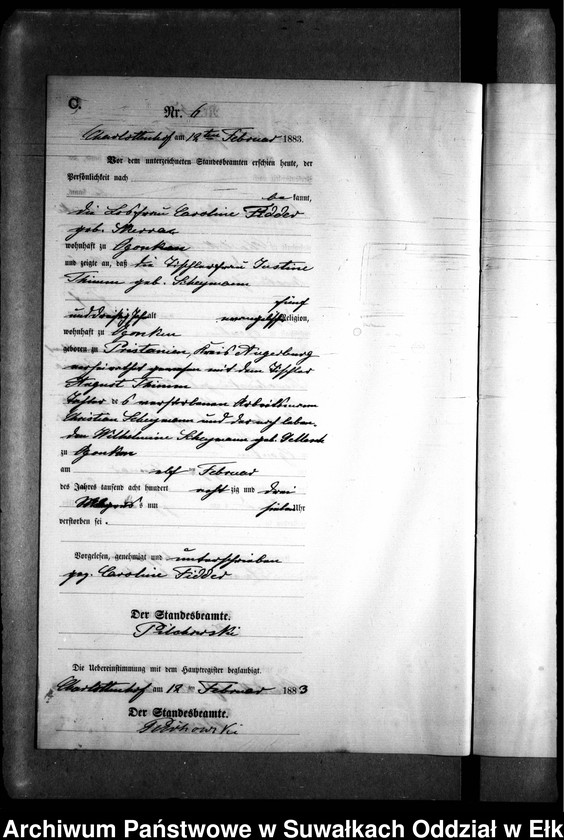 C.
Nr. 6
Charlottenhof am 12ten Februar 1883.
Vor dem unterzeichneten Standesbeamten erschien heute, der
Persönlichkeit nach
be kannt,
die Losfrau Caroline Fidder
geb.
wohnhaft zu Gonken
und zeigte an, daß die Tischlerfrau Justine
Thimm geb.
fünf
unddreißig Jahr alt evangelischer Religion,
wohnhaft zu Gonken
geboren zu Pristanien, Kreis Angerburg
verheirathet gewesen mit dem Tischler
August Thimm
Tochter des verstorbenen
Christian und der noch leben
den Wilhelmine geb.
zu Gonken
am elf ten Februar
des Jahres tausend acht hundert acht zig und drei
Morgens um sieben Uhr
verstorben sei.
Vorgelesen, genehmigt und unterschrieben
gez. Caroline Fidder
Der Standesbeamte.
Pilchowski
Die Uebereinstimmung mit dem Hauptregister beglaubigt.
Charlottenhof am 12 ten Februar 1883
Der Standesbeamte.
Pilchowski
Archiwum Państwowe w Suwałkach Oddział w Ełk